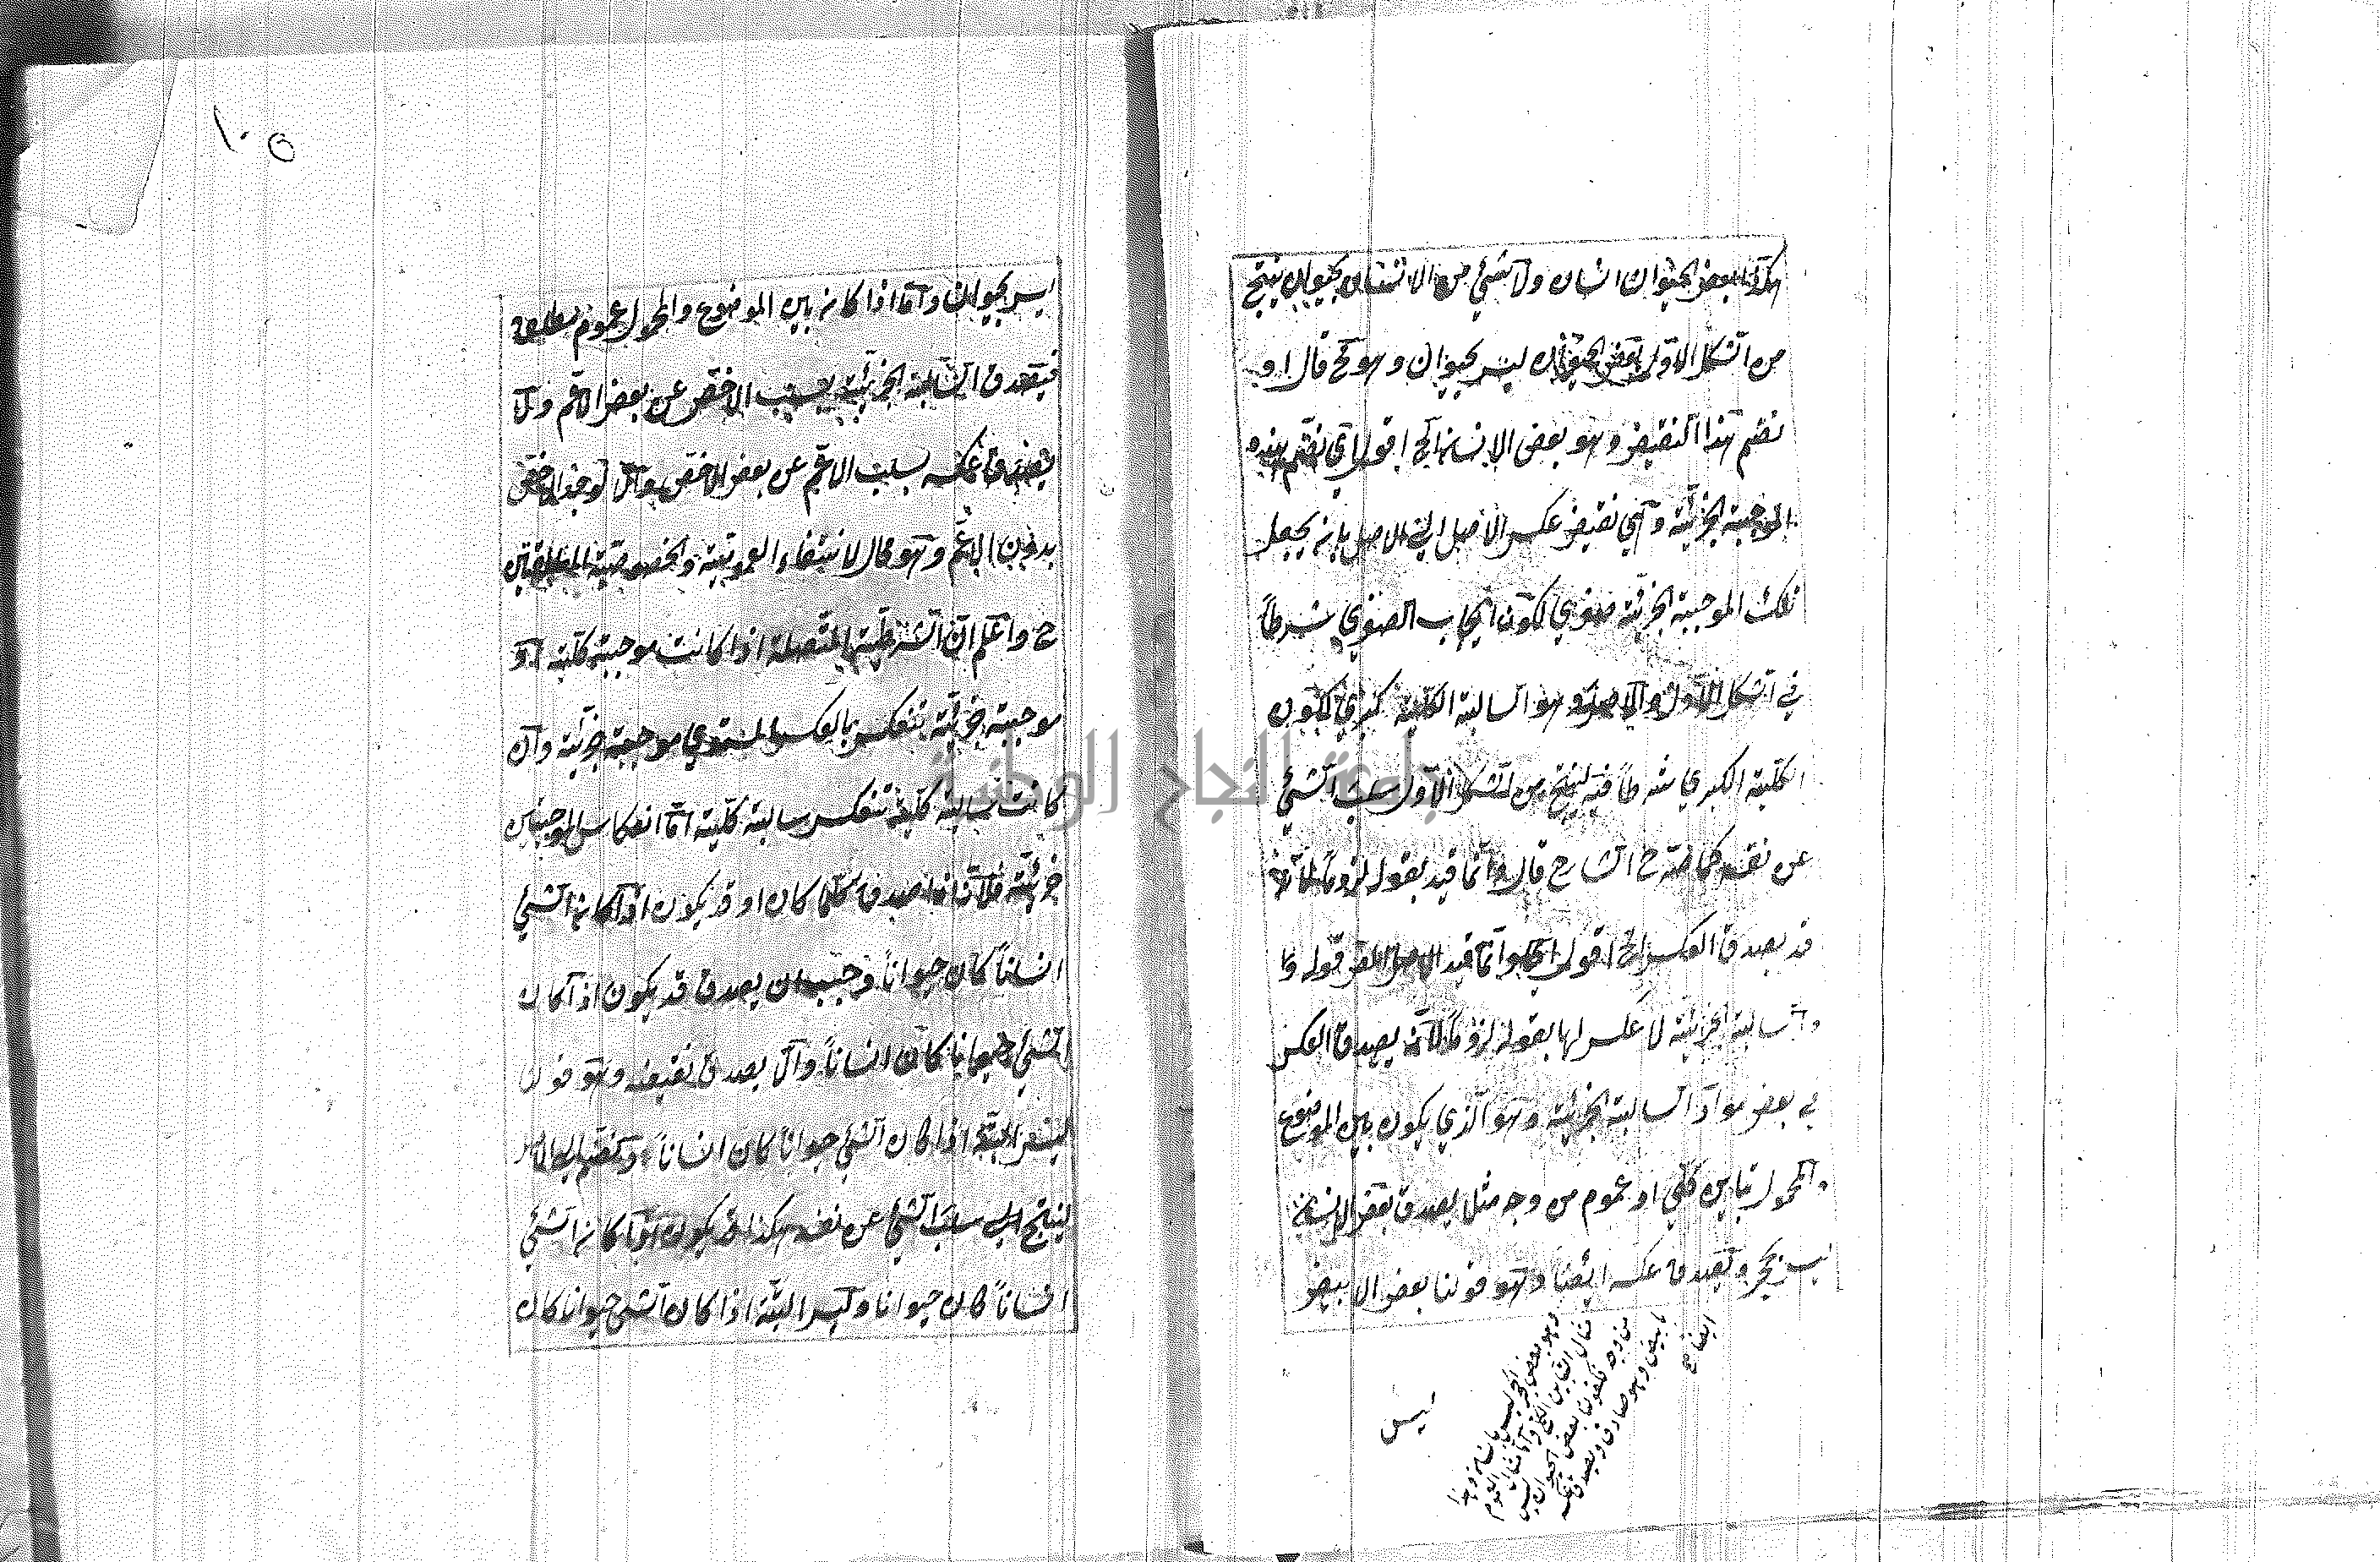 هكذا بعض الحيوان انسان ولا شئ من الانسان بحيوان ينتج
من الشكل الاول بعض الحيوان ليس بحيوان وهو مح قال او
نضم هذا النقيض وهو بعض الانسان الخ اقول اي نضم هذه
الموجبة الجزئية وهي نقيض عكس الاصل الى الاصل بانه يجعل
تلك الموجبة الجزئية صغري لكون ايجاب الصغري شرطاً
في الشكل الاول والاصل وهو السالبة الكلية كبري لكون
الكلية الكبري شرطاً فيه لينتج من الشكل الاول سلب الشئ
عن نفسه كما صرح الشارح قال وانما قيد بقوله لزوماً لانه
قد يصدق العكس الخ اقول اي وانما قيد المص قوله و
والسالبة الجزئية لا عكس لها بقوله لزوماً لانه يصدق العكس
في بعض مواد السالبة الجزئية وهو الذي يكون بين الموضوع
والمحمول تباين كلي او عموم من وجه مثل يصدق بعض الانسان
ليس بحجر ويصدق عكسه ايضاً وهو قولنا بعض الابيض
وهو بعض الحجر ليس بانسان وهذا
مثال التباين الكلي واما مثال العموم
من وجه فكقولنا بعض الحيوان ليس
بابيض وهو صادق ويصدق عكسه
ايضا
ليس
١٠٥
ليس بحيوان واما اذا كان بين الموضوع والمحمول عموم مطلق
فيصدق السالبة الجزئية بسلب الاخص عن بعض الاعم ولا
يصدق عكسه بسلب الاعم عن بعض الاخص والا لوجد الاخص
بدون الاعم وهو محال لانتفاء العمومية والخصوصية المطلقتين
ح واعلم ان الشرطية المتصلة اذا كانت موجبة كلية او
موجبة جزئية تنعكس بالعكس المستوي موجبة جزئية وان
كانت سالبة كلية تنعكس سالبة كلية اما انعكاس الموجبتين
جزئية فلانه اذا صدق كلما كان او قد يكون اذا كان الشئ
انساناً كان حيواناً وجب ان يصدق قد يكون اذا كان
الشئ حيوانا كان انساناً والا يصدق نقيضه وهو قولنا
ليس البتة اذا كان الشئ حيواناً كان انساناً وتضم الى الاصل
لينتج الى سلب الشئ عن نفسه هكذا قد يكون اذا كان الشئ
انساناً كان حيوانا وليس البتة اذا كان الشئ حيوانا كان
جامعة النجاح الوطنية